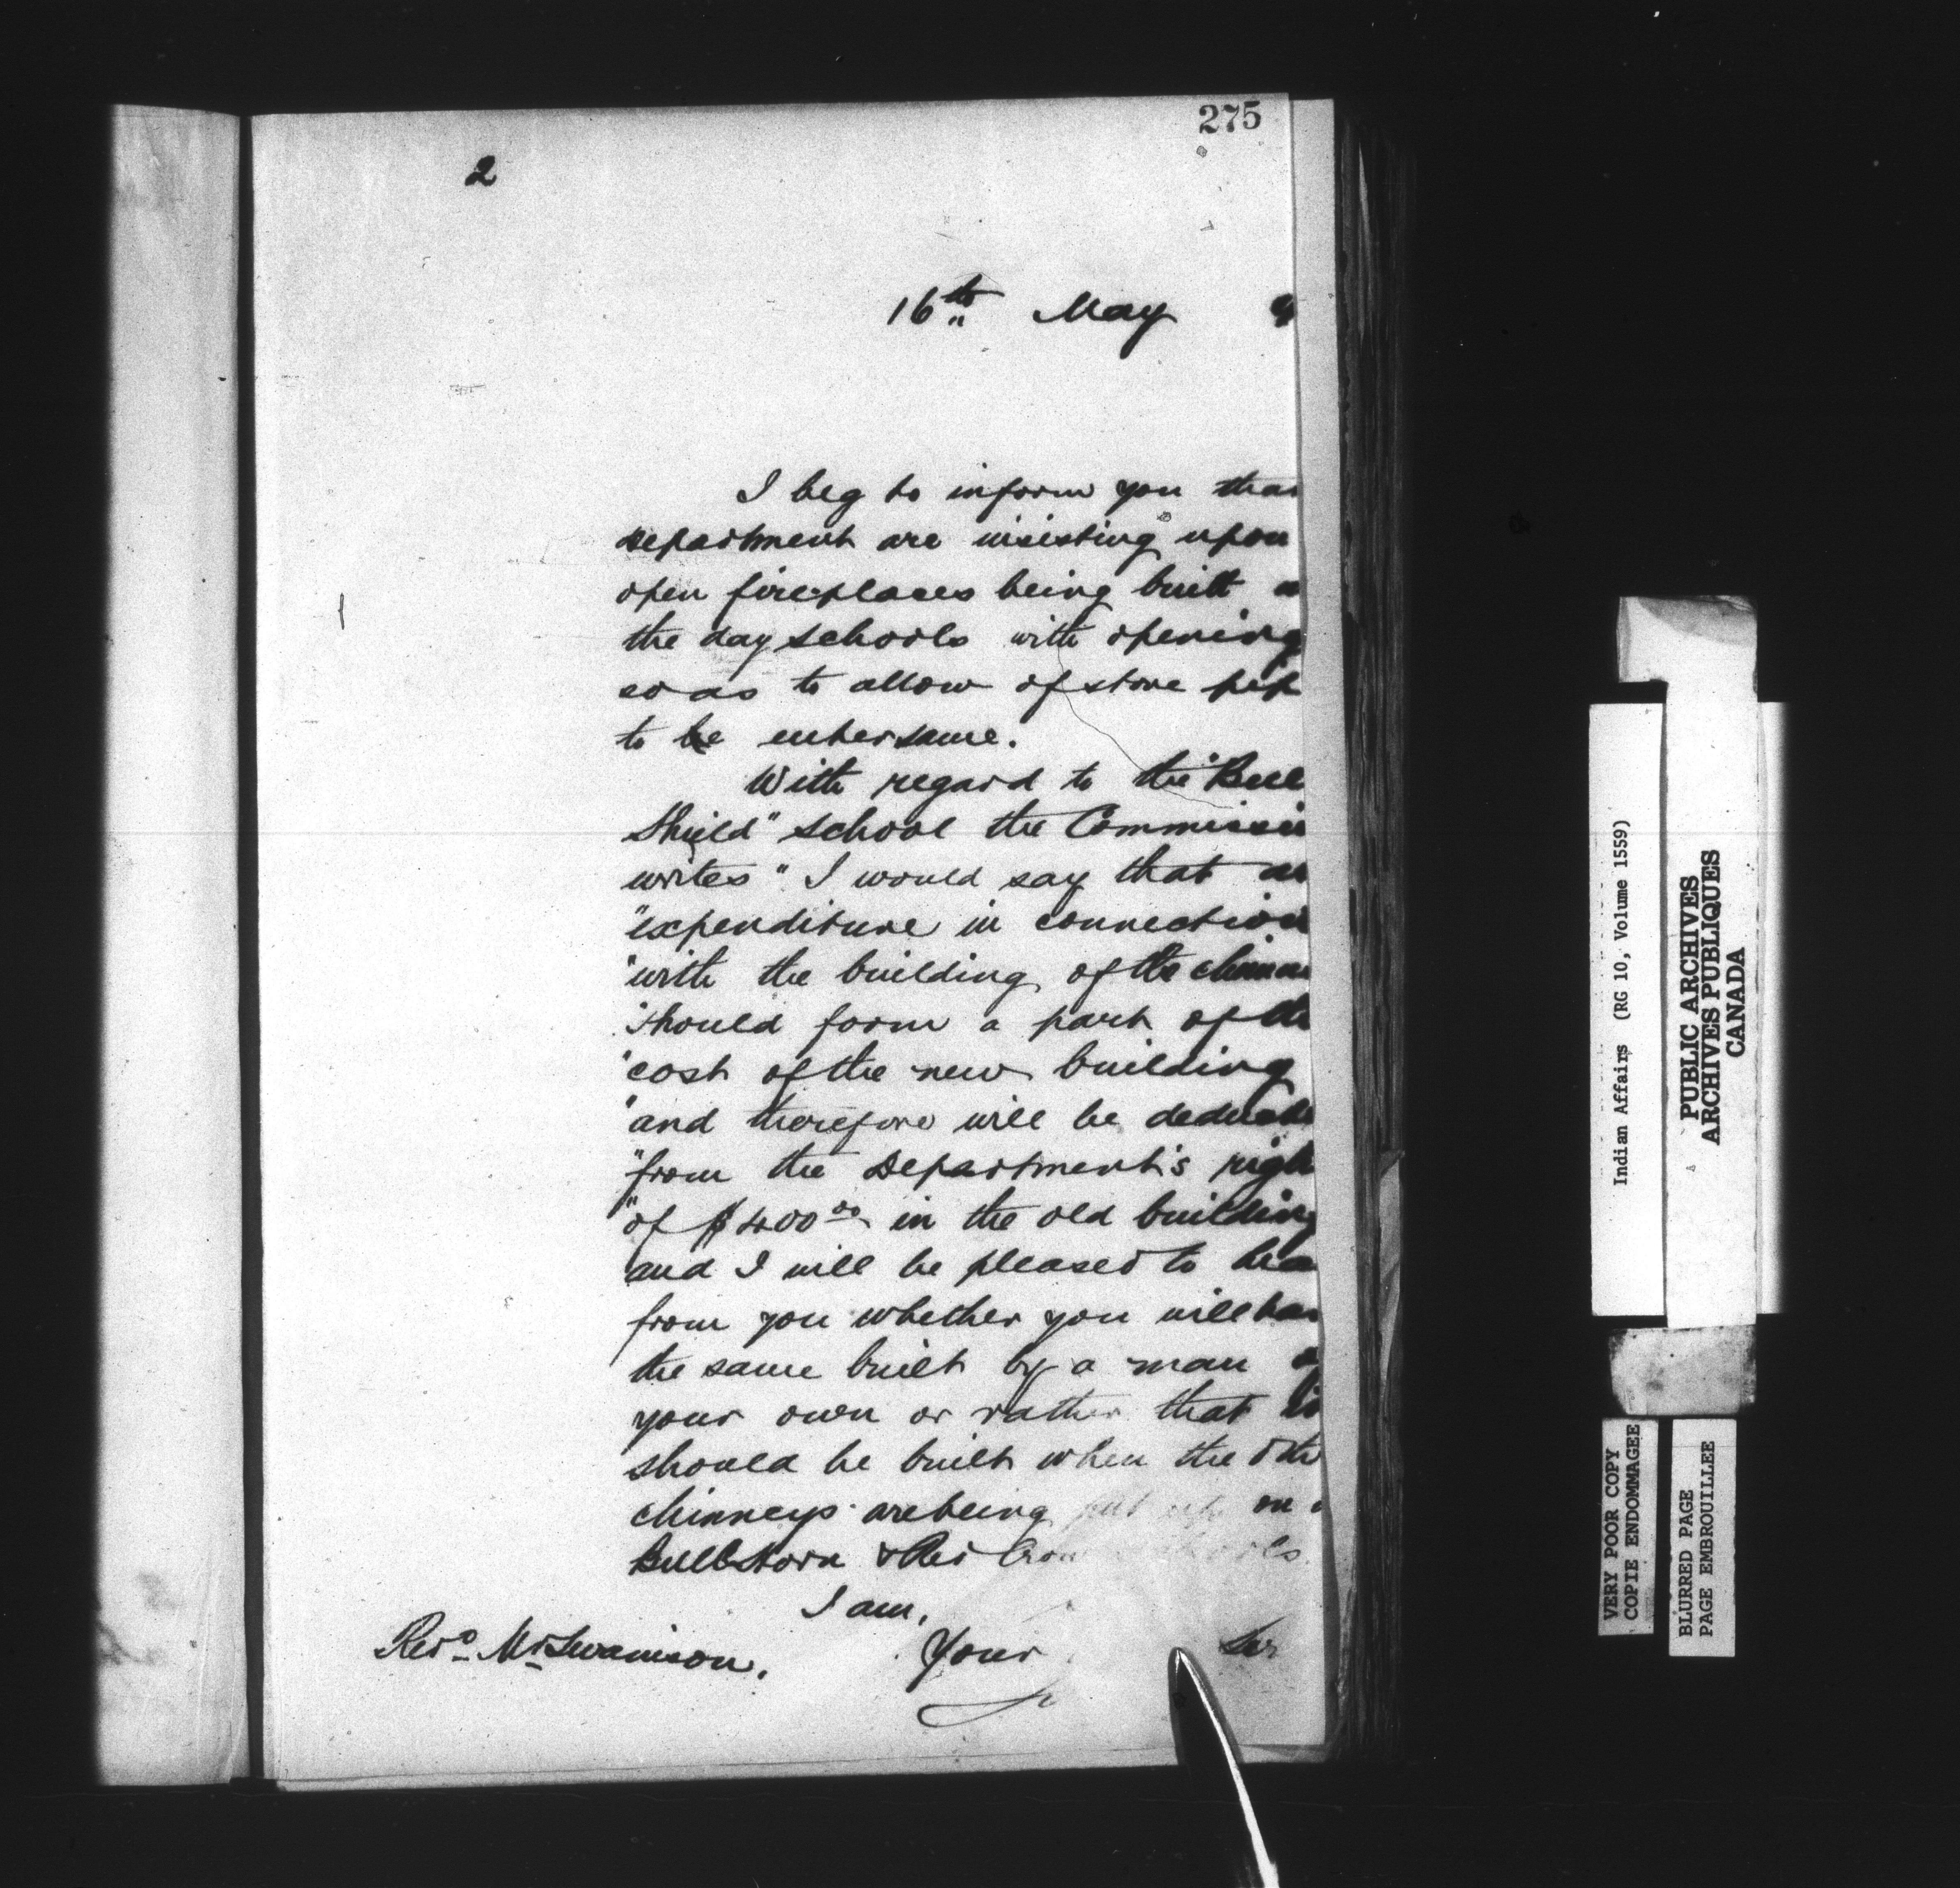 275
2
16th May 9
I beg to inform you that
Department are insisting upon
open fireplaces being built
the day schools with opening
so as to allow of stove pip
to be enter same.
With regard to the "Bull
Shield" school the Commissio
writes "I would say that an
"expenditure in connection
"with the building of the chimne
"should form a part of the
"cost of the new building
"and therefore will be deducte
"from the Department's righ
"of $400.00 in the old building
and I will be pleased to hea
from you whether you will hav
the same built by a man o
your own or rather that it
should be built when the oth
chimneys are being put up on
Bull Horn & Red Crow schools.
I am,
Revd. Mr Swainson. Your Ser
Indian Affairs (RG 10, Volume 1559)
PUBLIC ARCHIVES
ARCHIVES PUBLIQUES
CANADA
VERY POOR COPY
COPIE ENDOMMAGEE
BLURRED PAGE
PAGE EMBROUILLEE